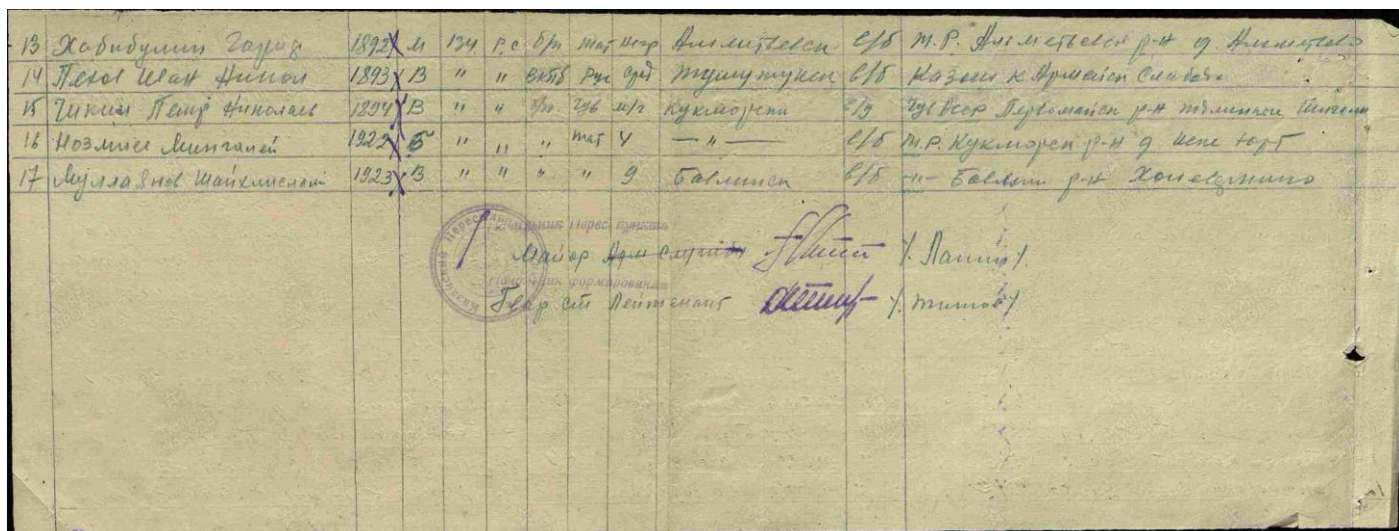 13 Хабибулин Гариф 1892 М 134 р.с б/п тат негр Альметьевск с/б Т.Р. Альметьевск р-н д. Альметьево
14 Пехов Иван Никол 1893 В " " вкпб рус срд с/б Казань к Армейск Слобода
15 Чикин Петр Николаев 1894 В " " б/п чув м/г Кукморски Чув АССР Первомайск р-н
16 Минголей 1922 Б " " " тат 4 — " — с/б Т.Р. Кукморск р-н д Иске Юрт
17 Муллаянов Шайхлислам 1923 В " " " " 9 Бавлинск с/б -"- Бавлин р-н
Начальник Перес. пункта
Майор Адм службы /. Лапин /.
Начальник формирования
Гвар ст Лейтенант /. Титов /.